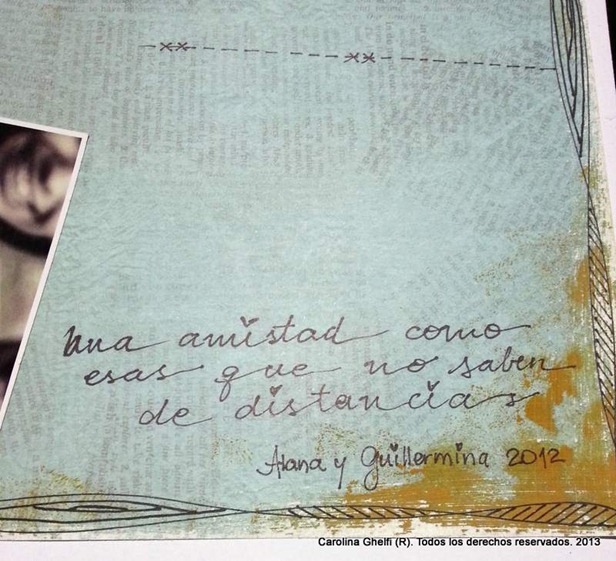 Una amistad como
esas que no saben
de distancias
Alana y Guillermina 2012
Carolina Ghelfi (R). Todos los derechos reservados. 2013